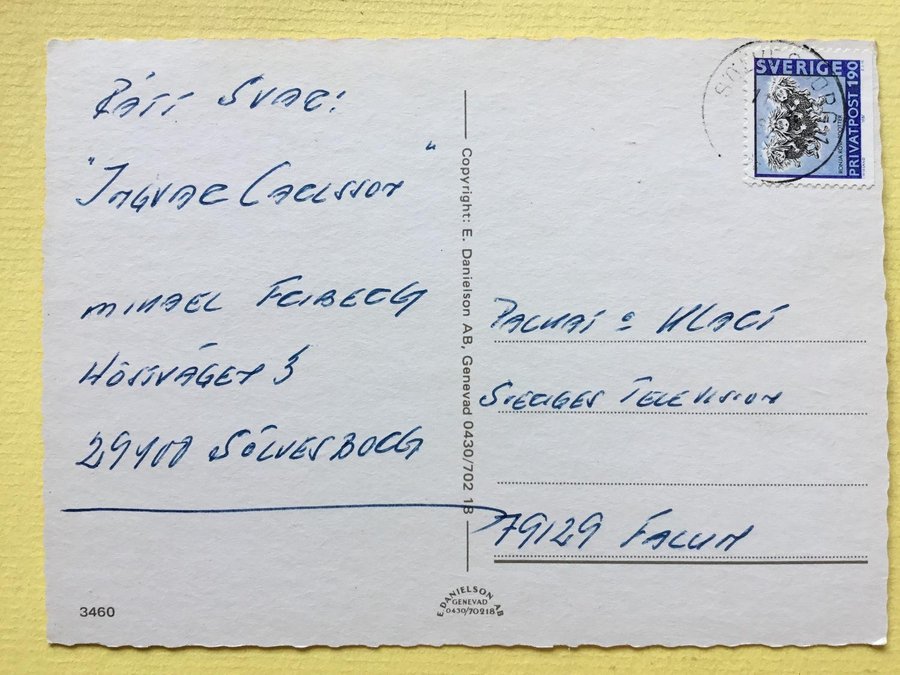 RÄTT SVAR:
"INGVAR CARLSSON"
MIKAEL FRIBERG
HÖSTVÄGEN 3
29400 SÖLVESBORG
3460
Copyright: E. Danielson AB, Genevad 0430/702 18
E. DANIELSON AB
GENEVAD
0430/70218
SVERIGE
PRIVATPOST 190
SÖLVESBORG
KLART
SVERIGES TELEVISION
79129 FALUN